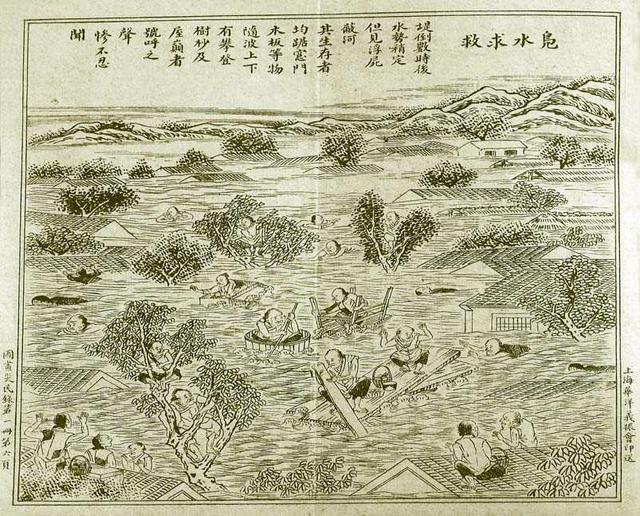 鳧水求救
堤倒數時後
水勢稍定
但見浮屍
蔽河
其生存者
均踞窓門
木板等物
隨波上下
有攀登
樹杪及
屋巔者
號呼之
聲
慘不忍
聞
上海華洋義振會印送
圖畫災民錄第一冊第六頁